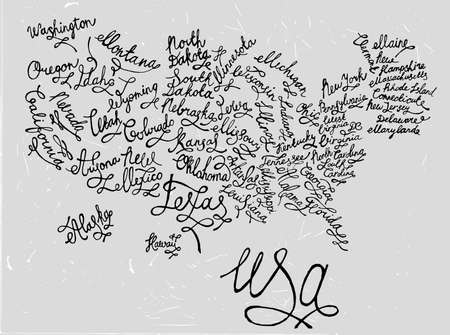 Washington
Montana
North
Dakota
Minnesota
Oregon
Idaho
South
Dakota
Wisconsin
Michigan
Wyoming
New York
Maine
New
Hampshire
Massachusetts
Rhode Island
Connecticute
New Jersey
Delaware
Marylande
Nevada
California
Utah
Colorado
Nebraska
Iowa
Illinois
Indiana
Ohio
Pennsylvania
West
Virginia
Virginia
Kentucky
Kansas
Missouri
Tennessee
North Carolina
South
Carolina
Arizona
New
Mexico
Oklahoma
Arkansas
Alabama
Georgia
Texas
Louisiana
Florida
Alaska
Hawaii
USA